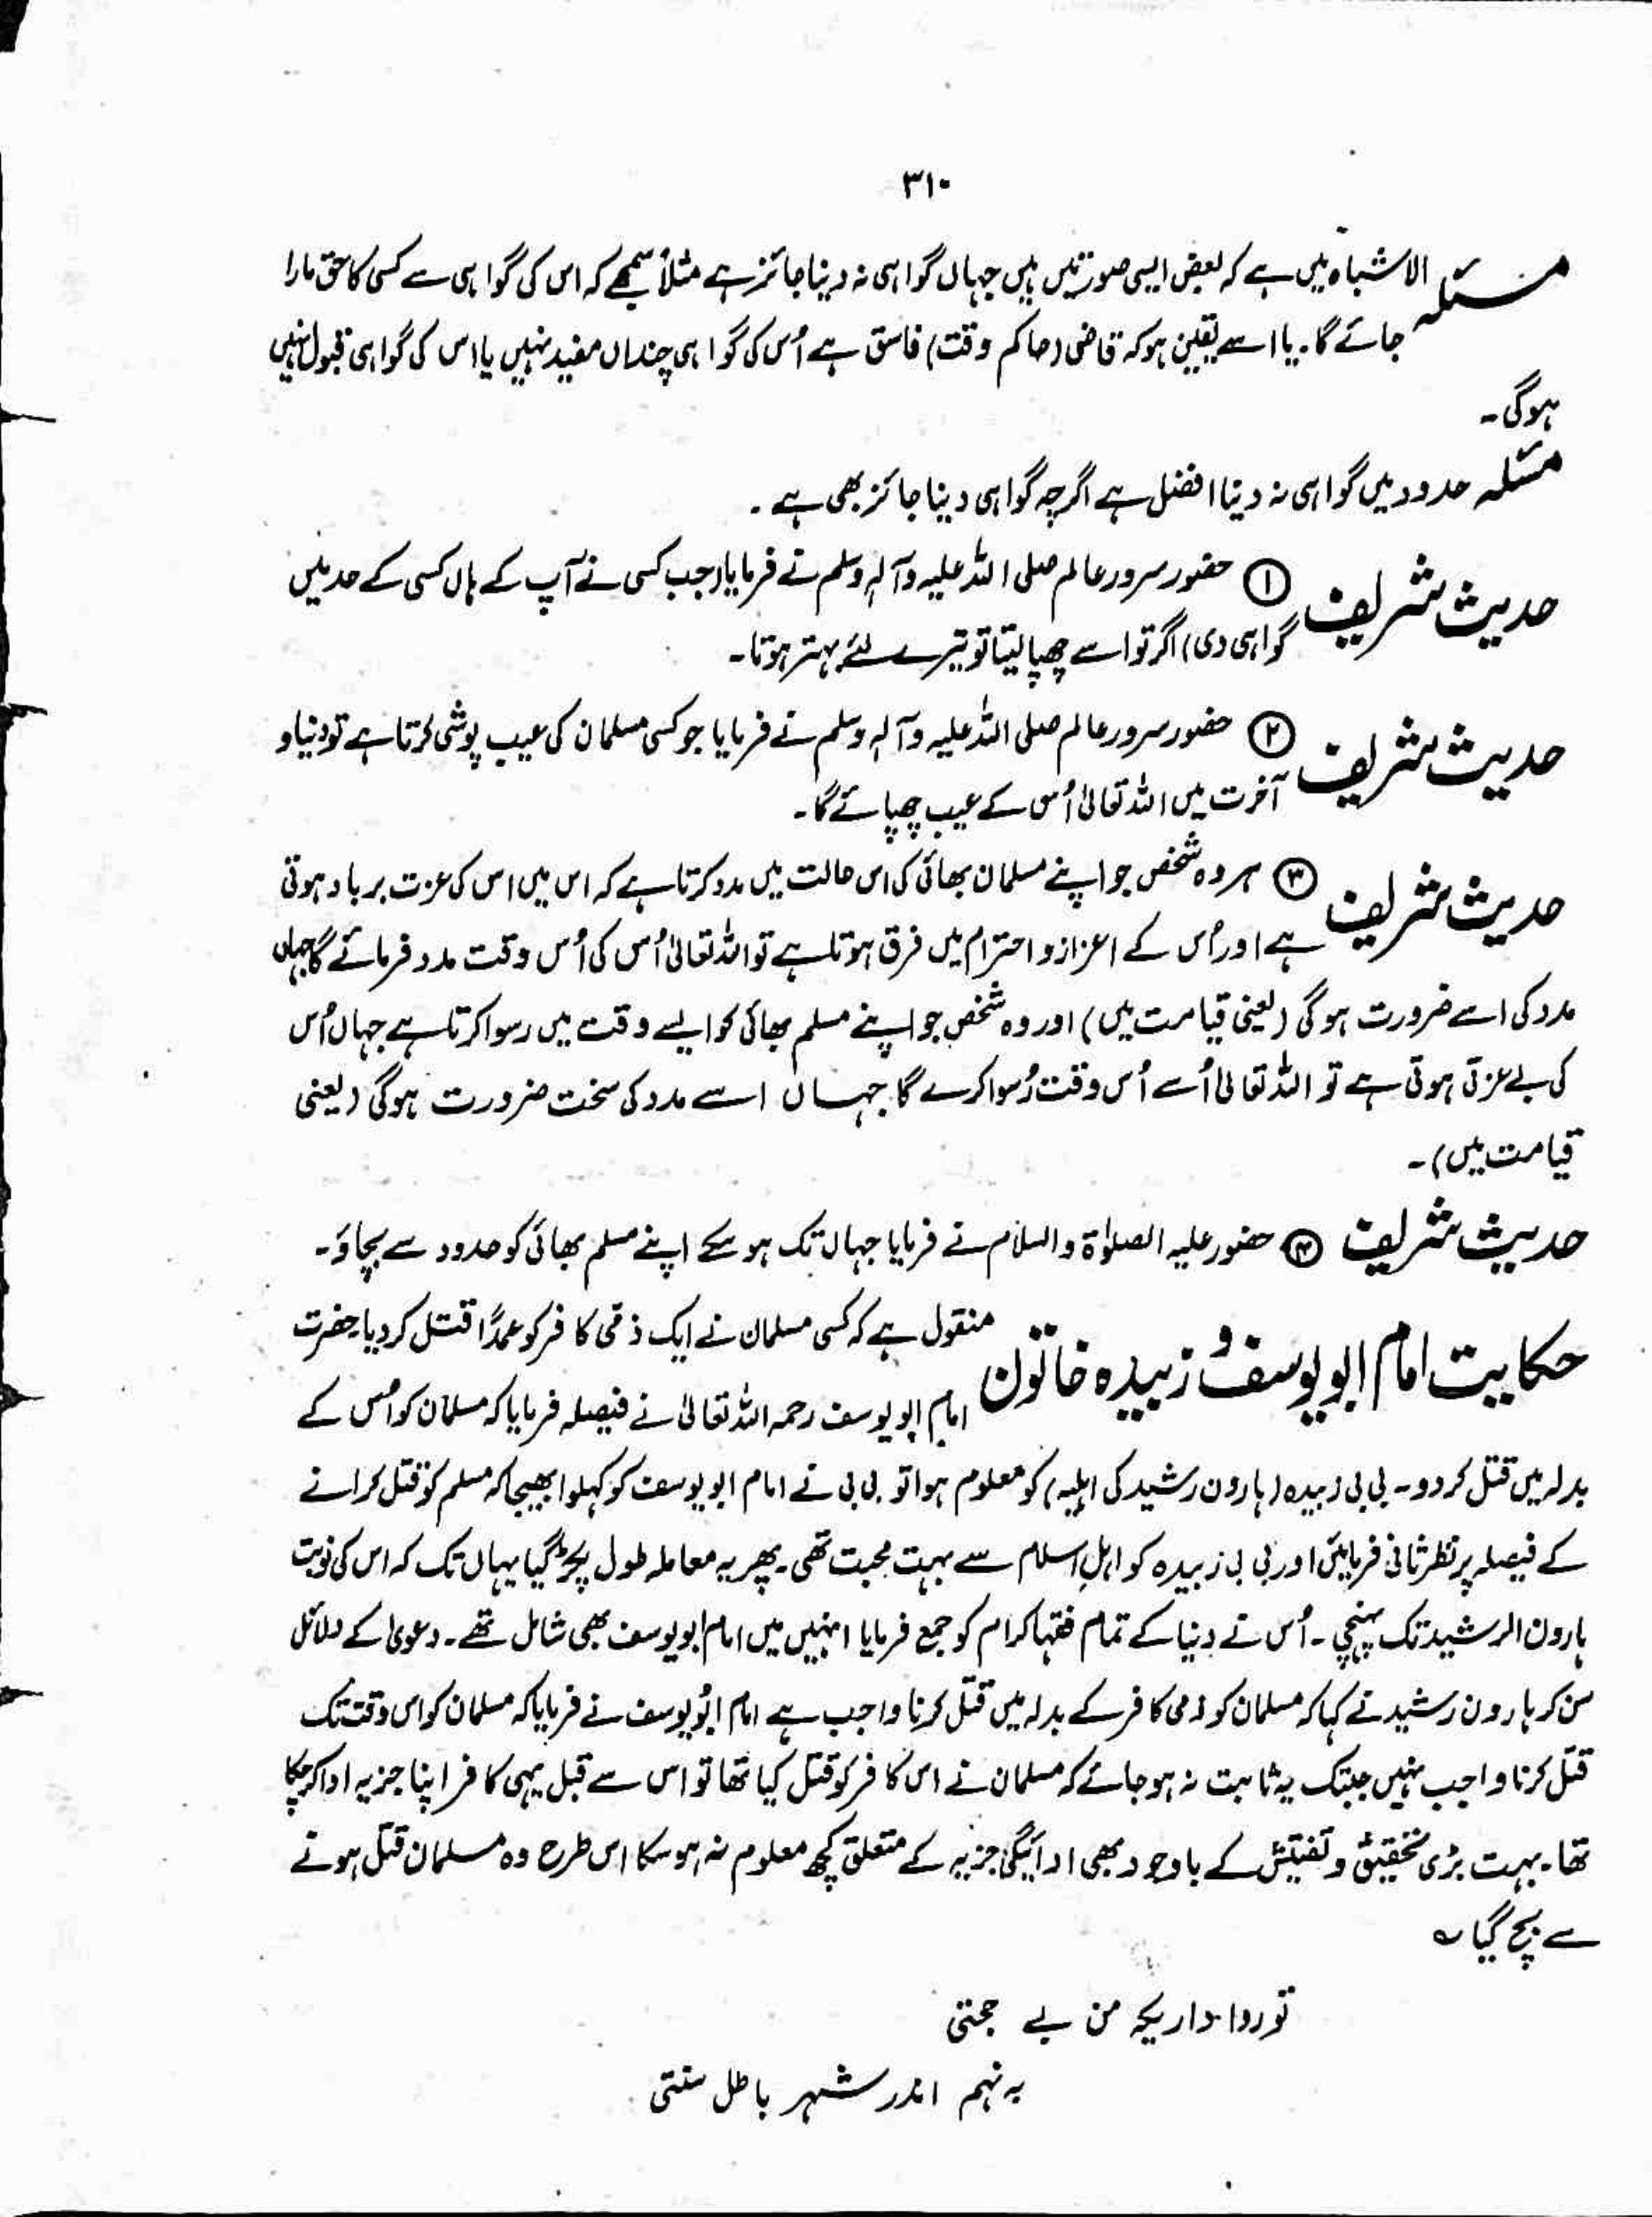 ۳۱۰
مسئلہ الاشباہ میں ہے کہ بعض ایسی صورتیں ہیں جہاں گواہی نہ دینا جائز ہے مثلاً سمجھے کہ اس کی گواہی سے کسی کا حق مارا
جائے گا۔ یا اسے یقین ہو کہ قاضی (حاکم وقت) فاسق ہے اُس کی گواہی چنداں مفید نہیں یا اس کی گواہی قبول نہیں
ہوگی۔
مسئلہ حدود میں گواہی نہ دینا افضل ہے اگرچہ گواہی دینا جائز بھی ہے۔
حدیث شریف ① حضور سرور عالم صلی اللہ علیہ وآلہٖ وسلم نے فرمایا (جب کسی نے آپ کے ہاں کسی کے حد میں
گواہی دی) اگر تو اسے چھپا لیتا تو تیرے لئے بہتر ہوتا۔
حدیث شریف ② حضور سرور عالم صلی اللہ علیہ وآلہٖ وسلم نے فرمایا جو کسی مسلمان کی عیب پوشی کرتا ہے تو دنیا و
آخرت میں اللہ تعالیٰ اُس کے عیب چھپائے گا۔
حدیث شریف ③ ہر وہ شخص جو اپنے مسلمان بھائی کی اس حالت میں مدد کرتا ہے کہ اس میں اس کی عزت برباد ہوتی
ہے اور اُس کے اعزاز و احترام میں فرق ہوتا ہے تو اللہ تعالیٰ اُس کی اُس وقت مدد فرمائے گا جہاں
مدد کی اسے ضرورت ہوگی (یعنی قیامت میں) اور وہ شخص جو اپنے مسلم بھائی کو ایسے وقت میں رسوا کرتا ہے جہاں اُس
کی بے عزتی ہوتی ہے تو اللہ تعالیٰ اُسے اُس وقت رُسوا کرے گا جہاں اسے مدد کی سخت ضرورت ہوگی (یعنی
قیامت میں)۔
حدیث شریف ④ حضور علیہ الصلوٰۃ والسلام نے فرمایا جہاں تک ہو سکے اپنے مسلم بھائی کو حدود سے بچاؤ۔
حکایت امام ابو یوسف و زبیدہ خاتون منقول ہے کہ کسی مسلمان نے ایک ذمّی کافر کو عمداً قتل کر دیا۔ حضرت
امام ابو یوسف رحمہ اللہ تعالیٰ نے فیصلہ فرمایا کہ مسلمان کو اُس کے
بدلہ میں قتل کر دو۔ بی بی زبیدہ (ہارون رشید کی اہلیہ) کو معلوم ہوا تو بی بی نے امام ابو یوسف کو کہلوا بھیجا کہ مسلم کو قتل کرانے
کے فیصلہ پر نظر ثانی فرمائیں اور بی بی زبیدہ کو اہل اسلام سے بہت محبت تھی۔ پھر یہ معاملہ طول پکڑ گیا یہاں تک کہ اس کی نوبت
ہارون الرشید تک پہنچی۔ اُس نے دنیا کے تمام فقہا کرام کو جمع فرمایا انہیں میں امام ابو یوسف بھی شامل تھے۔ دعویٰ کے دلائل
سن کر ہارون رشید نے کہا کہ مسلمان کو ذمی کافر کے بدلہ میں قتل کرنا واجب ہے امام ابو یوسف نے فرمایا کہ مسلمان کو اس وقت تک
قتل کرنا واجب نہیں جبتک یہ ثابت نہ ہو جائے کہ مسلمان نے اس کافر کو قتل کیا تھا تو اس سے قبل یہی کافر اپنا جزیہ ادا کر چکا
تھا۔ بہت بڑی تحقیق و تفتیش کے باوجود بھی ادائیگی جزیہ کے متعلق کچھ معلوم نہ ہو سکا اس طرح وہ مسلمان قتل ہونے
سے بچ گیا ؎
تو روا داریکہ من بے حجتی
بہ نہم اندر شہر باطل سنتی